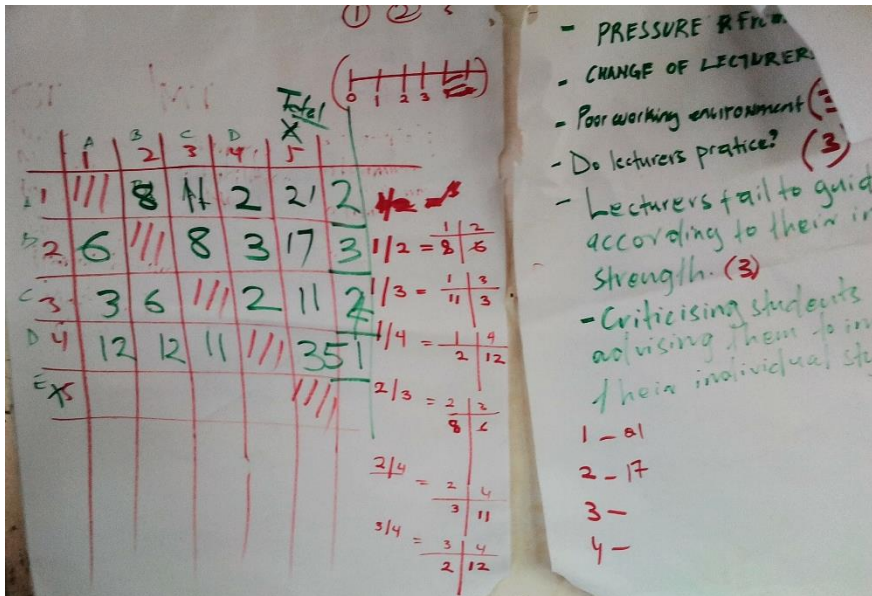 1 2 3
0 1 2 3
Total
X
A B C D
1 2 3 4 5
A 1 /// 8 11 2 21 2
B 2 6 /// 8 3 17 3
C 3 3 6 /// 2 11 2
D 4 12 12 11 /// 35 1
E X5 ////
1/2 = 1 2
8 6
1/3 = 1 3
11 3
1/4 = 1 4
2 12
2/3 = 2 3
8 6
2/4 = 2 4
3 11
3/4 = 3 4
2 12
- PRESSURE
- CHANGE OF LECTURER
- Poor working environment
- Do lecturers pratice? (3)
- Lecturers fail to guid
according to their in
strength. (3)
- Criticising students
advising them to in
their individual stu
1 - 21
2 - 17
3 -
4 -